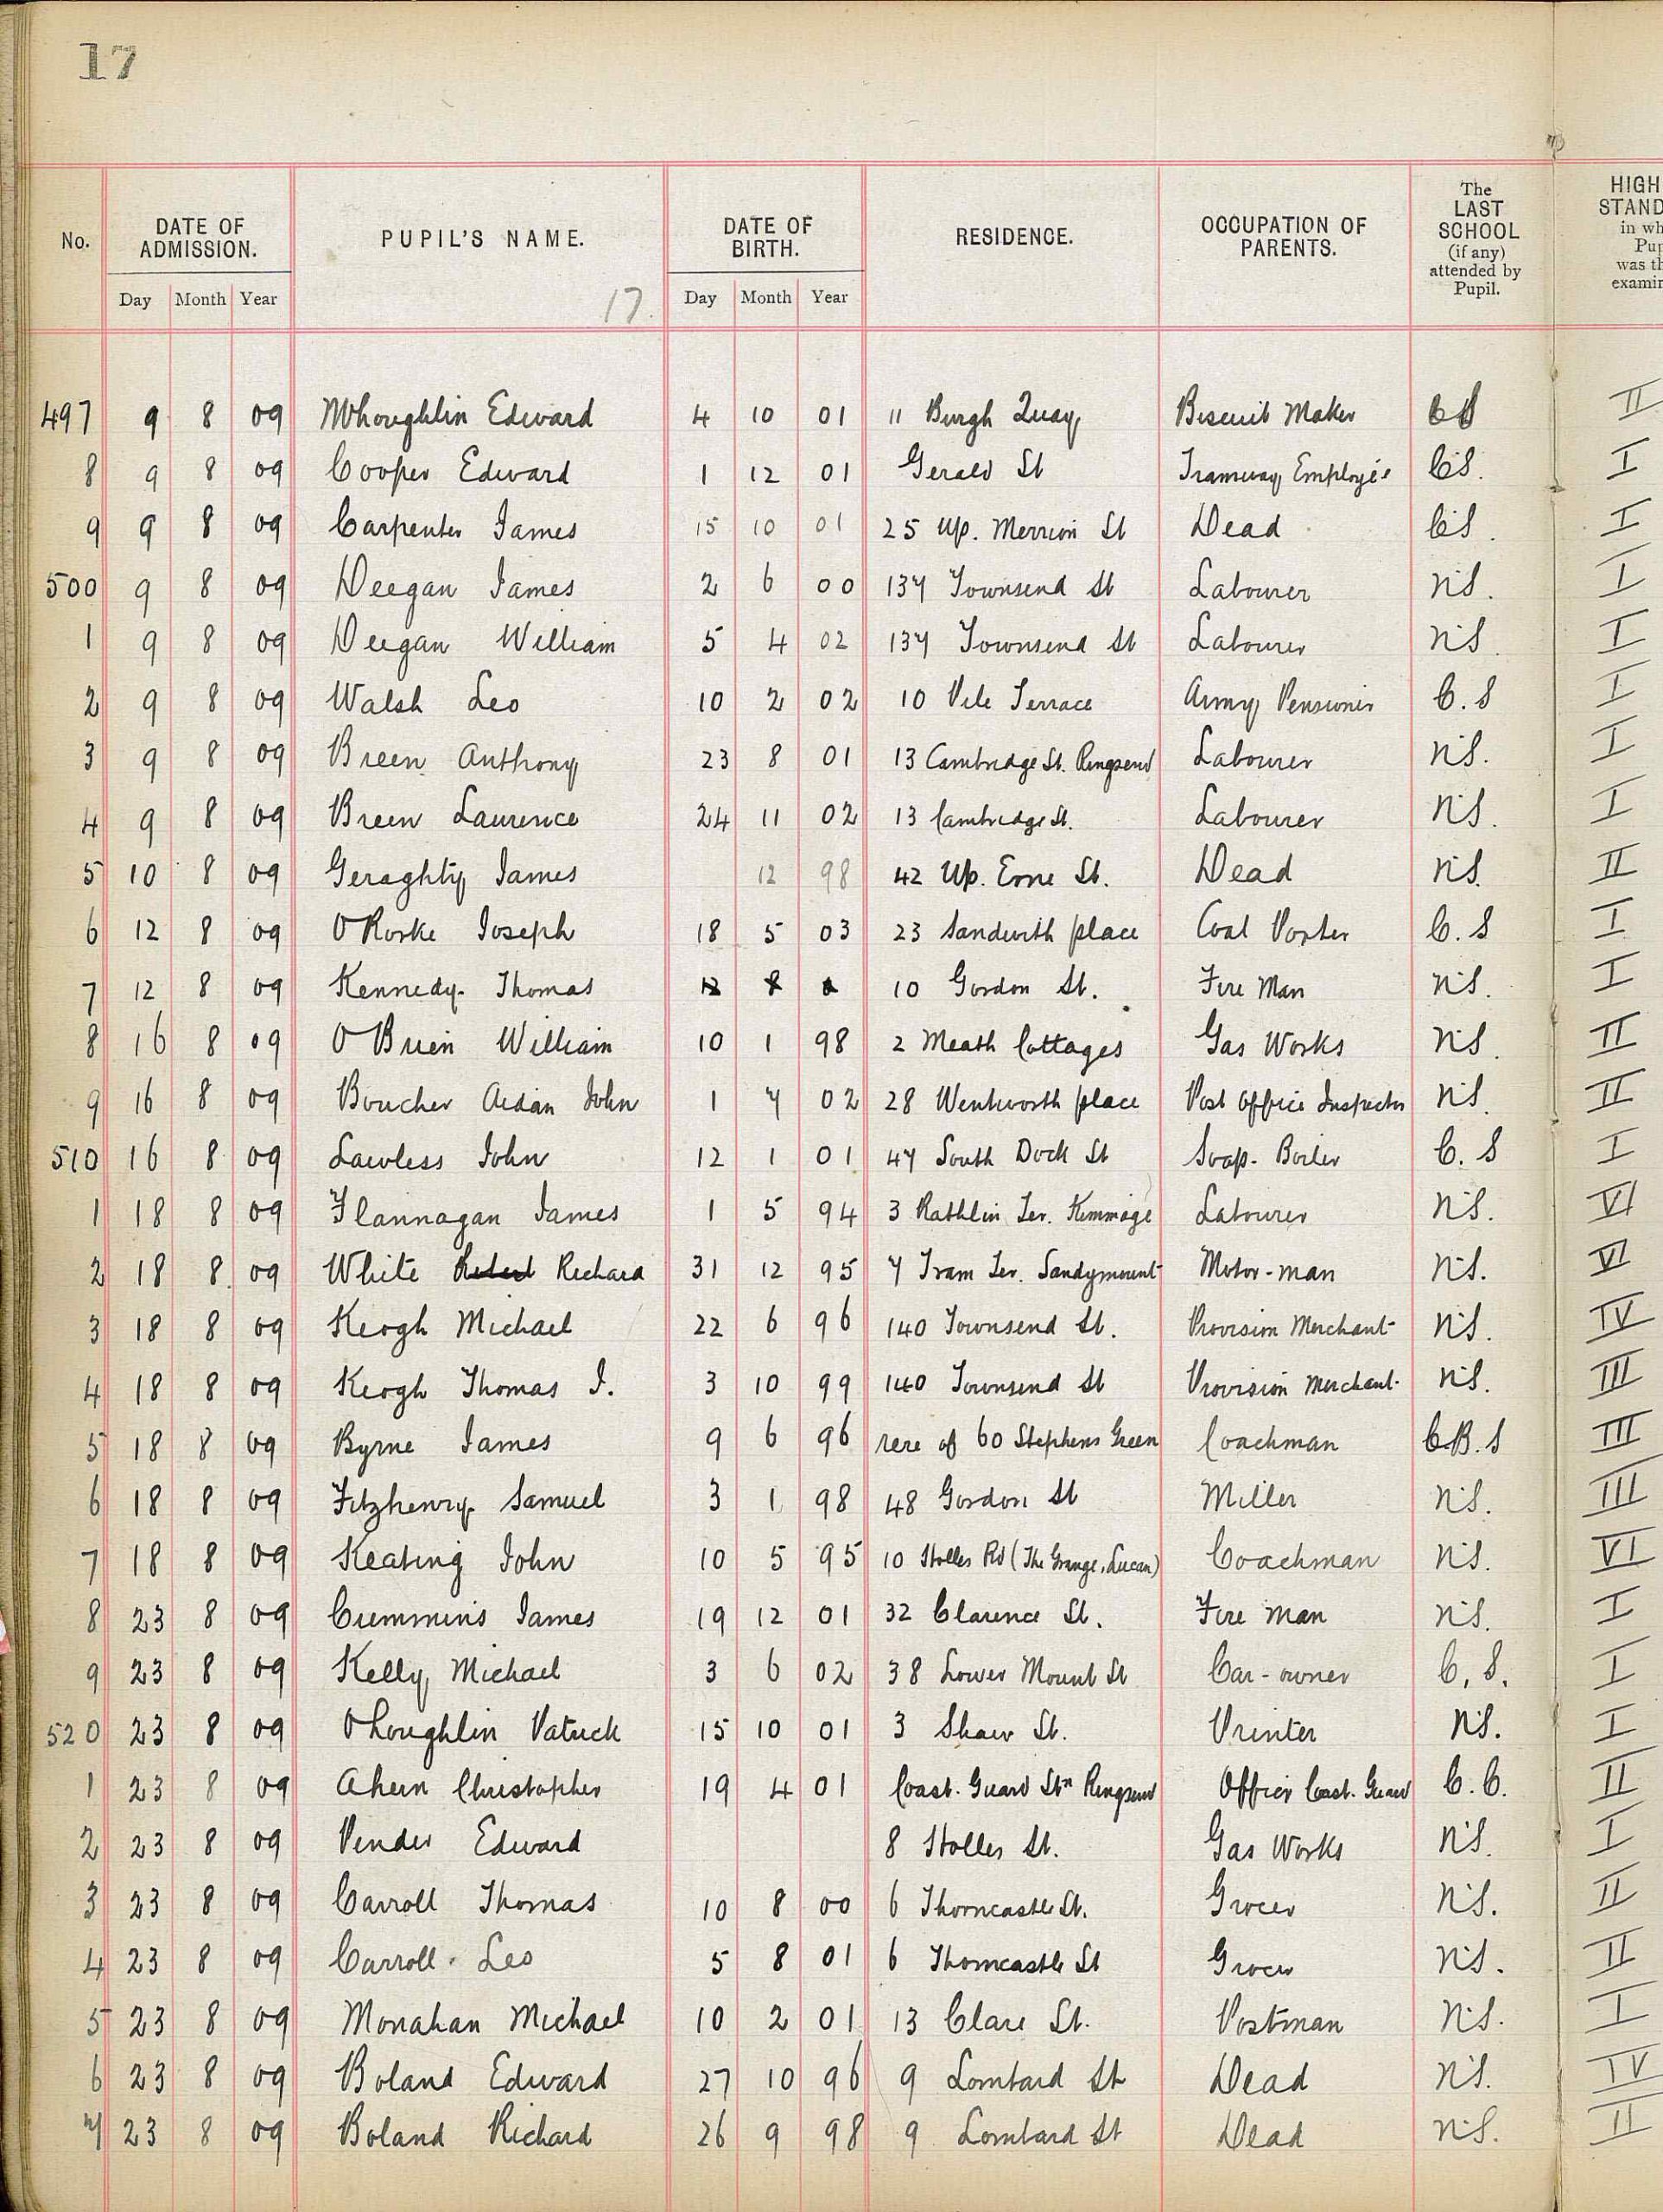 17
No. DATE OF ADMISSION. PUPIL'S NAME. DATE OF BIRTH. RESIDENCE. OCCUPATION OF PARENTS. The LAST SCHOOL (if any) attended by Pupil. HIGH STAND in wh Pup was th examin
Day Month Year 17. Day Month Year
497 9 8 09 Edward 4 10 01 11 Burgh Quay Biscuit Maker II
8 9 8 09 Cooper Edward 1 12 01 Gerald St Tramway Employé C.S. I
9 9 8 09 Carpenter James 15 10 01 25 Up. Merrion St Dead C.S. I
500 9 8 09 Deegan James 2 6 00 137 Townsend St Labourer N.S. I
1 9 8 09 Deegan William 5 4 02 137 Townsend St Labourer N.S. I
2 9 8 09 Walsh Leo 10 2 02 10 Terrace Army Pensioner C.S I
3 9 8 09 Breen Anthony 23 8 01 13 Cambridge St. Ringsend Labourer N.S. I
4 9 8 09 Breen Laurence 24 11 02 13 Cambridge St. Labourer N.S. I
5 10 8 09 Geraghty James 12 98 42 Up. Erne St. Dead N.S. II
6 12 8 09 O Rorke Joseph 18 5 03 23 Sandwith place Coal Porter C.S I
7 12 8 09 Kennedy Thomas 10 Gordon St. Fire Man N.S. I
8 16 8 09 O Brien William 10 1 98 2 Meath Cottages Gas Works N.S. II
9 16 8 09 Boucher Aidan John 1 7 02 28 Wentworth place Post Office Inspector N.S. II
510 16 8 09 Lawless John 12 1 01 47 South Dock St Soap-Boiler C.S I
1 18 8 09 Flannagan James 1 5 94 3 Rathlin Ter. Kimmage Labourer N.S. VI
2 18 8 09 White Richard 31 12 95 7 Tram Ter. Sandymount Motor-man N.S. VI
3 18 8 09 Keogh Michael 22 6 96 140 Townsend St. Provision Merchant N.S. IV
4 18 8 09 Keogh Thomas J. 3 10 99 140 Townsend St Provision Merchant N.S. III
5 18 8 09 Byrne James 9 6 96 rere of 60 Stephens Green Coachman C.B.S III
6 18 8 09 Fitzhenry Samuel 3 1 98 48 Gordon St Miller N.S. III
7 18 8 09 Keating John 10 5 95 10 Holles Rd (The Grange, Lucan) Coachman N.S. VI
8 23 8 09 Cummins James 19 12 01 32 Clarence St. Fire man N.S. I
9 23 8 09 Kelly Michael 3 6 02 38 Lower Mount St Car-owner C.S. I
520 23 8 09 O Loughlin Patrick 15 10 01 3 Shaw St. Printer N.S. I
1 23 8 09 Ahern Christopher 19 4 01 Coast. Guard Stn Ringsend Officer Coast. Guard C.C. II
2 23 8 09 Pender Edward 8 Holles St. Gas Works N.S. I
3 23 8 09 Carroll Thomas 10 8 00 6 Thorncastle St. Grocer N.S. II
4 23 8 09 Carroll Leo 5 8 01 6 Thorncastle St Grocer N.S. II
5 23 8 09 Monahan Michael 10 2 01 13 Clare St. Postman N.S. I
6 23 8 09 Boland Edward 27 10 96 9 Lombard St Dead N.S. IV
7 23 8 09 Boland Richard 26 9 98 9 Lombard St Dead N.S. II